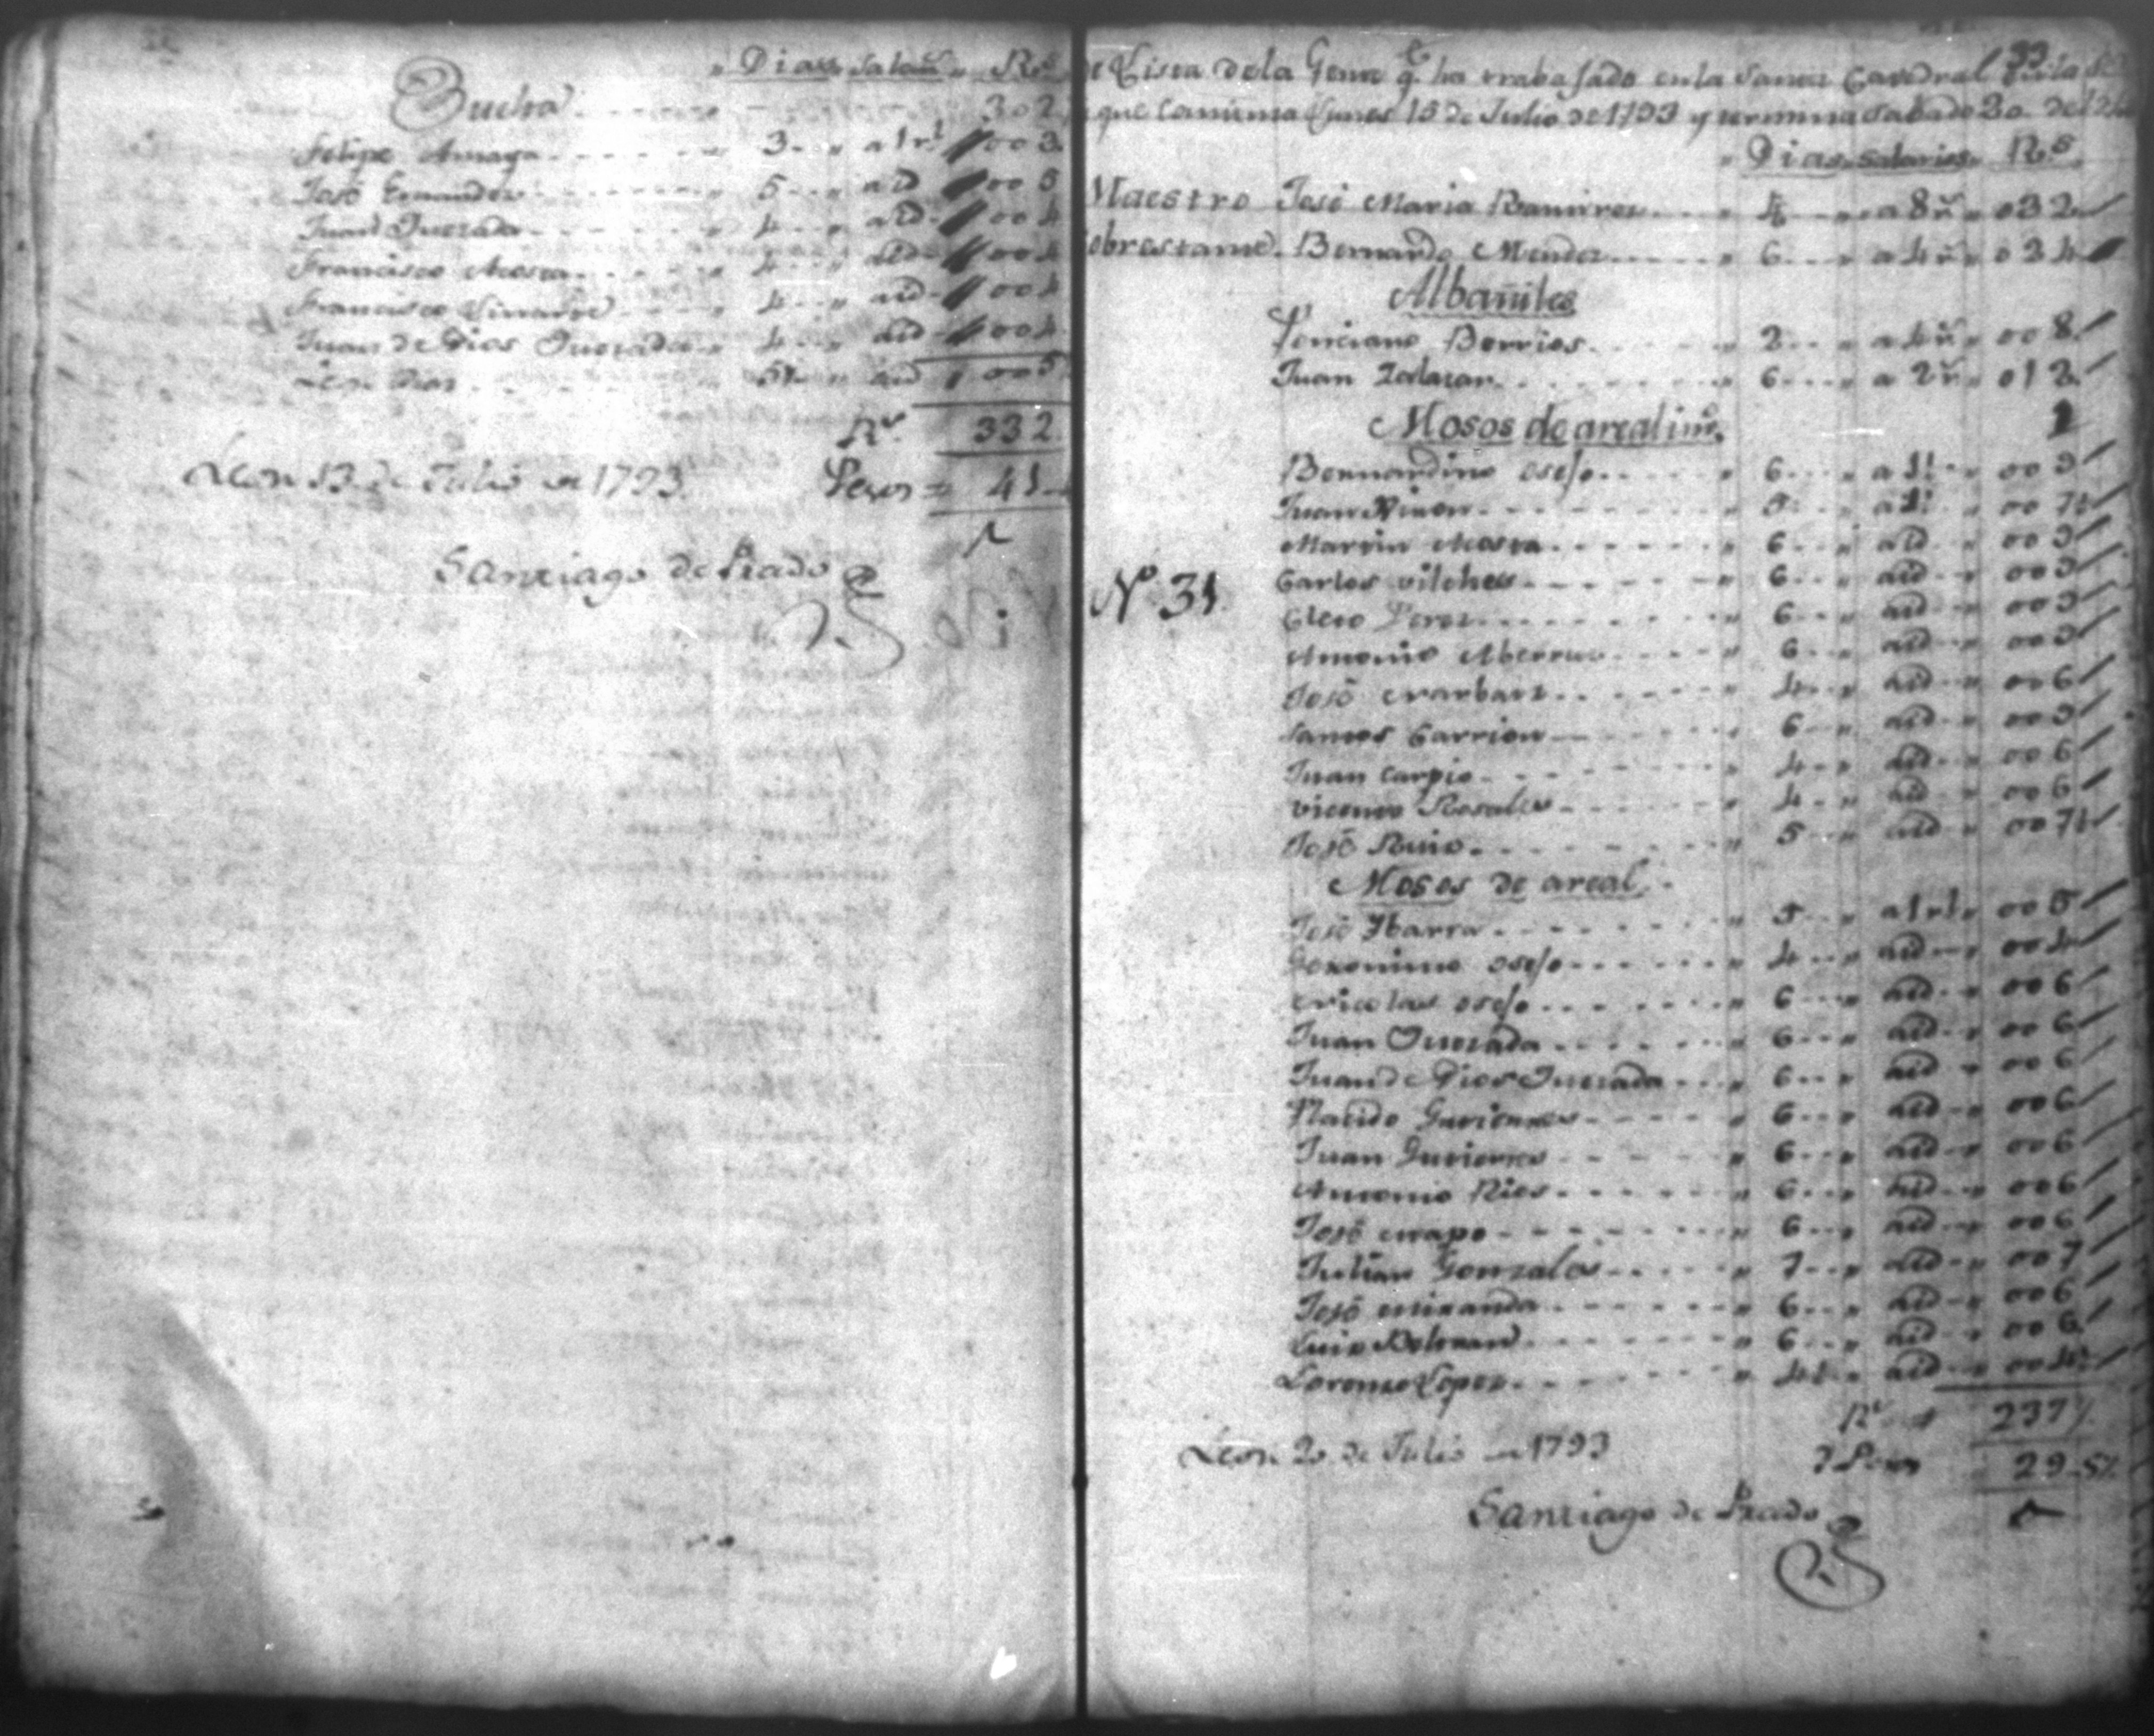 Dias Salar.s R.s
Buelta 302
Felipe Amaya 3 a 1 r.l 003
José Ernandes 5 a id 005
Juan Quezada 4 a id 004
Francisco Acosta 4 a id 004
Francisco 4 a id 004
Juan de Dios Quezada 4 a id 004
Leon Dias 5 a id 005
R.s 332
Leon 13 de Julio de 1793. Pesos = 41
Santiago de Prado
39
Lista de la Gente q.e ha trabajado en la Santa Catedral en la
que Comiensa Lunes 15 de Julio de 1793 y termina Sabado 20 del
Dias Salarios R.s
Maestro José Maria Ramires 4 a 8 r.s 032
obrestante. Bernardo Mendes 6 a 4 r.s 024
Albañiles
Ponciano Berrios 2 a 4 r.s 008
Juan Zalazar 6 a 2 r.s 012
Mosos de a real i m.o
Bernardino osejo 6 a 1½ 009
Juan 5 a 1½ 007½
Martin Acosta 6 a id 009
N.o 31
Carlos vilches 6 a id 009
Cleto Perez 6 a id 009
Antonio 6 a id 009
José Narbaes 4 a id 006
Santos Carrion 6 a id 009
Juan Carpio 4 a id 006
Vicente Rosales 4 a id 006
José Ruio 5 a id 007½
Mosos de a real
José Ybarra 5 a 1 r.l 005
Geronimo osejo 4 a id 004
Nicolas osejo 6 a id 006
Juan Quezada 6 a id 006
Juan de Dios Quezada 6 a id 006
Placido Gutierres 6 a id 006
Juan Gutierres 6 a id 006
Antonio Rios 6 a id 006
José Crapo 6 a id 006
Julian Gonzales 7 a id 007
José Miranda 6 a id 006
Luis Beltran 6 a id 006
Lorenso Lopes 4½ a id 004½
R.s 237½
Leon 20 de Julio de 1793 Pesos 29-5½
Santiago de Prado